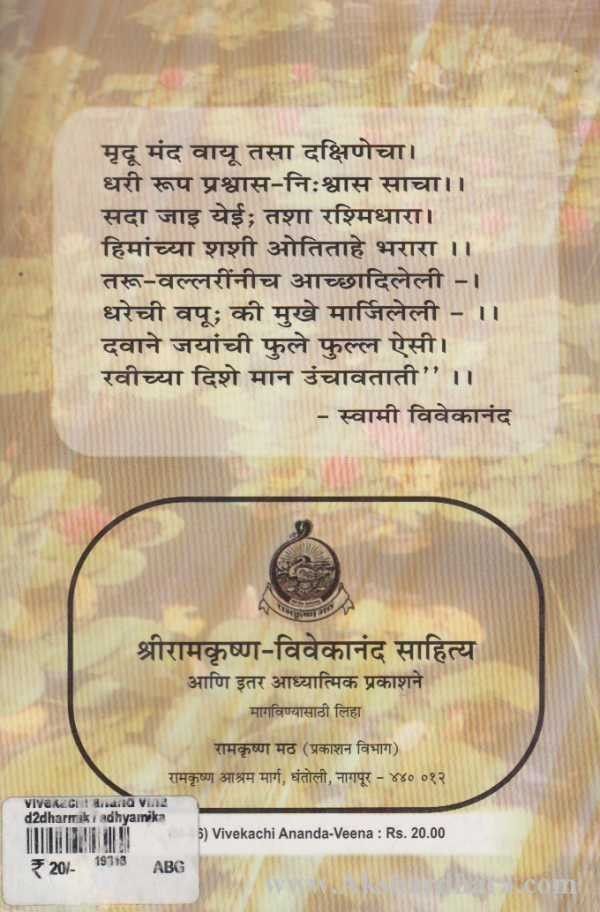 मृदू मंद वायू तसा दक्षिणेचा।
धरी रूप प्रश्वास-निःश्वास साचा।।
सदा जाइ येई; तशा रश्मिधारा।
हिमांच्या शशी ओतिताहे भरारा ।।
तरू-वल्लरींनीच आच्छादिलेली -।
धरेची वपू; की मुखे मार्जिलेली - ।।
दवाने जयांची फुले फुल्ल ऐसी।
रवीच्या दिशे मान उंचावताती” ।।
- स्वामी विवेकानंद
रामकृष्ण मठ
श्रीरामकृष्ण-विवेकानंद साहित्य
आणि इतर आध्यात्मिक प्रकाशने
मागविण्यासाठी लिहा
रामकृष्ण मठ (प्रकाशन विभाग)
रामकृष्ण आश्रम मार्ग, धंतोली, नागपूर - ४४० ०१२
vivekachi anand vina
d2dharmik / adhyamika
₹ 20/- ABG
6) Vivekachi Ananda-Veena : Rs. 20.00